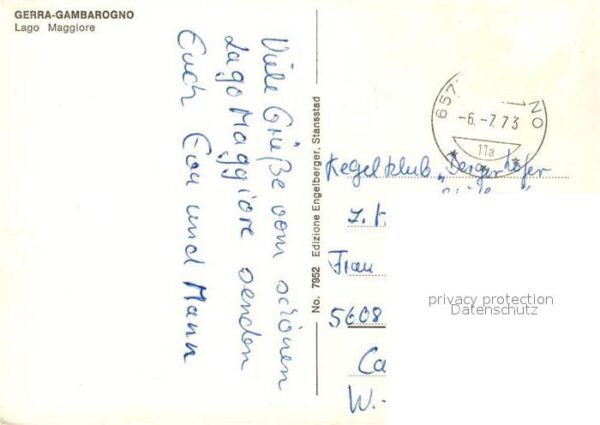 GERRA-GAMBAROGNO
Lago Maggiore
Viele Grüße vom schönen
Lago Maggiore senden
Euch Eva und Mann
No. 7952 Edizione Engelberger, Stansstad
657 NO
-6.-7.73
11a
Kegelklub „Bergerhöfer
z. H.
Frau
5608
W.-
privacy protection
Datenschutz